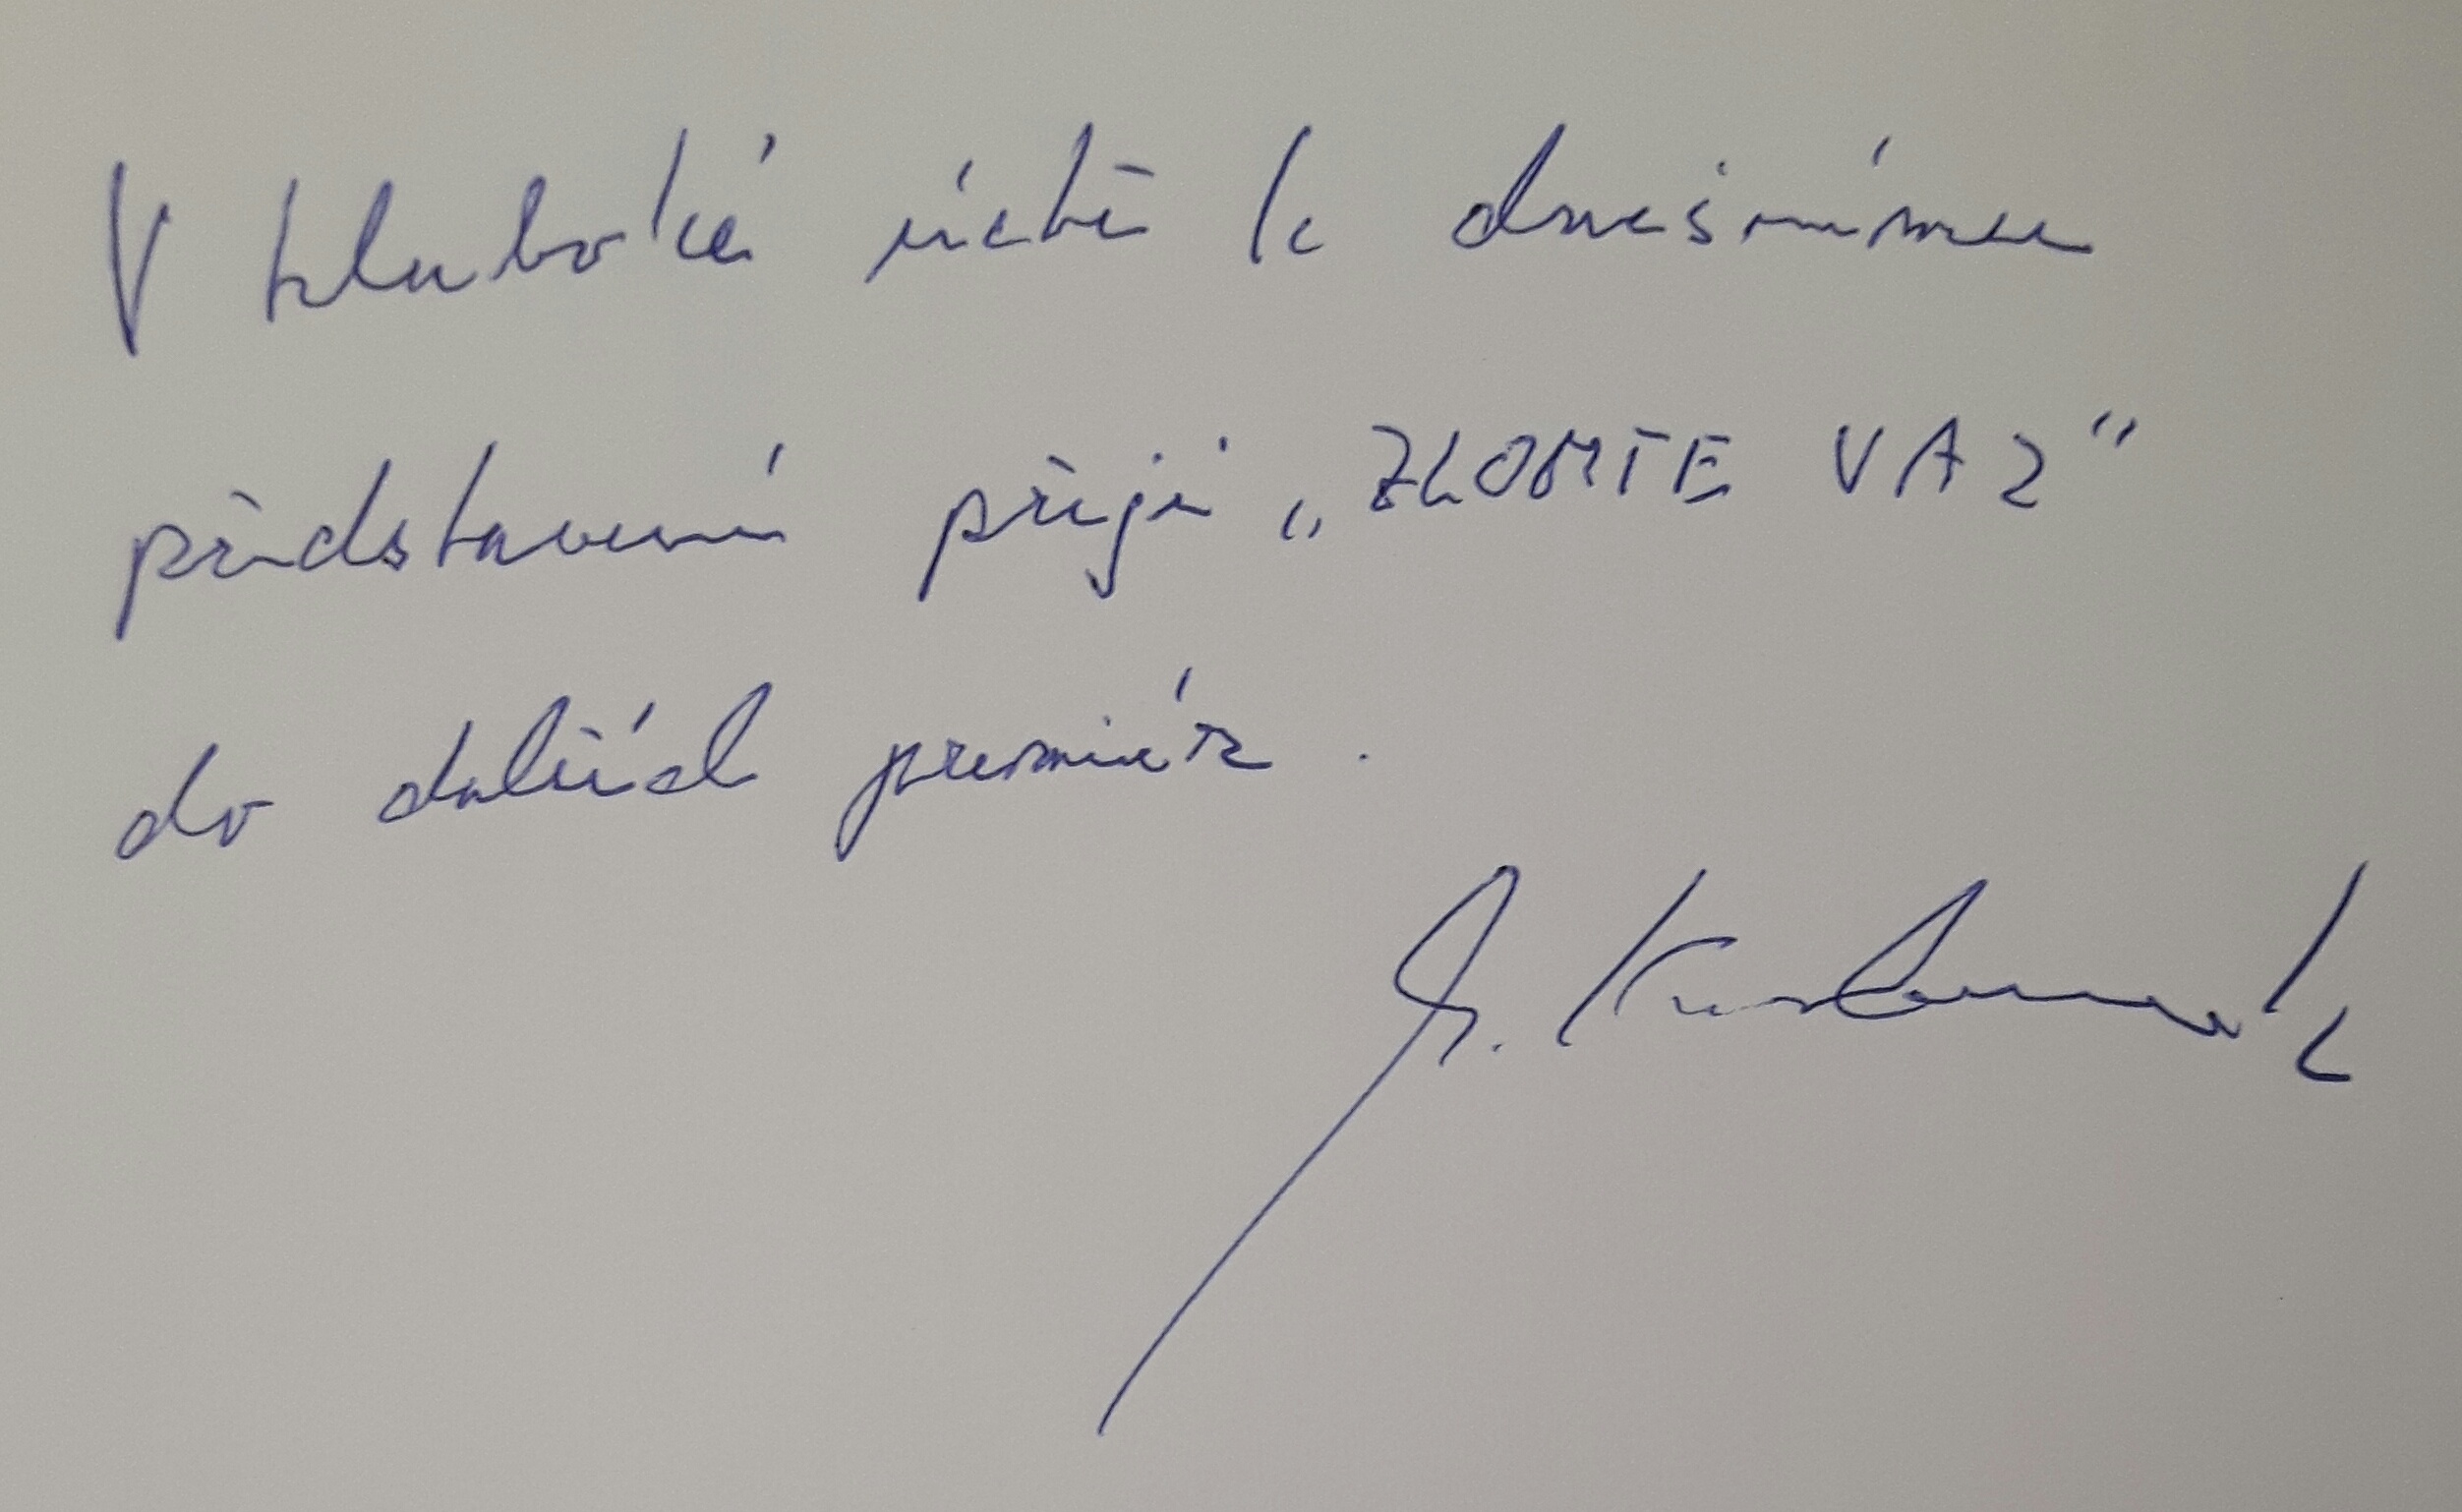 V hluboké úctě k dnešnímu
představení přeji „ZLOMTE VAZ“
do dalších premiér.